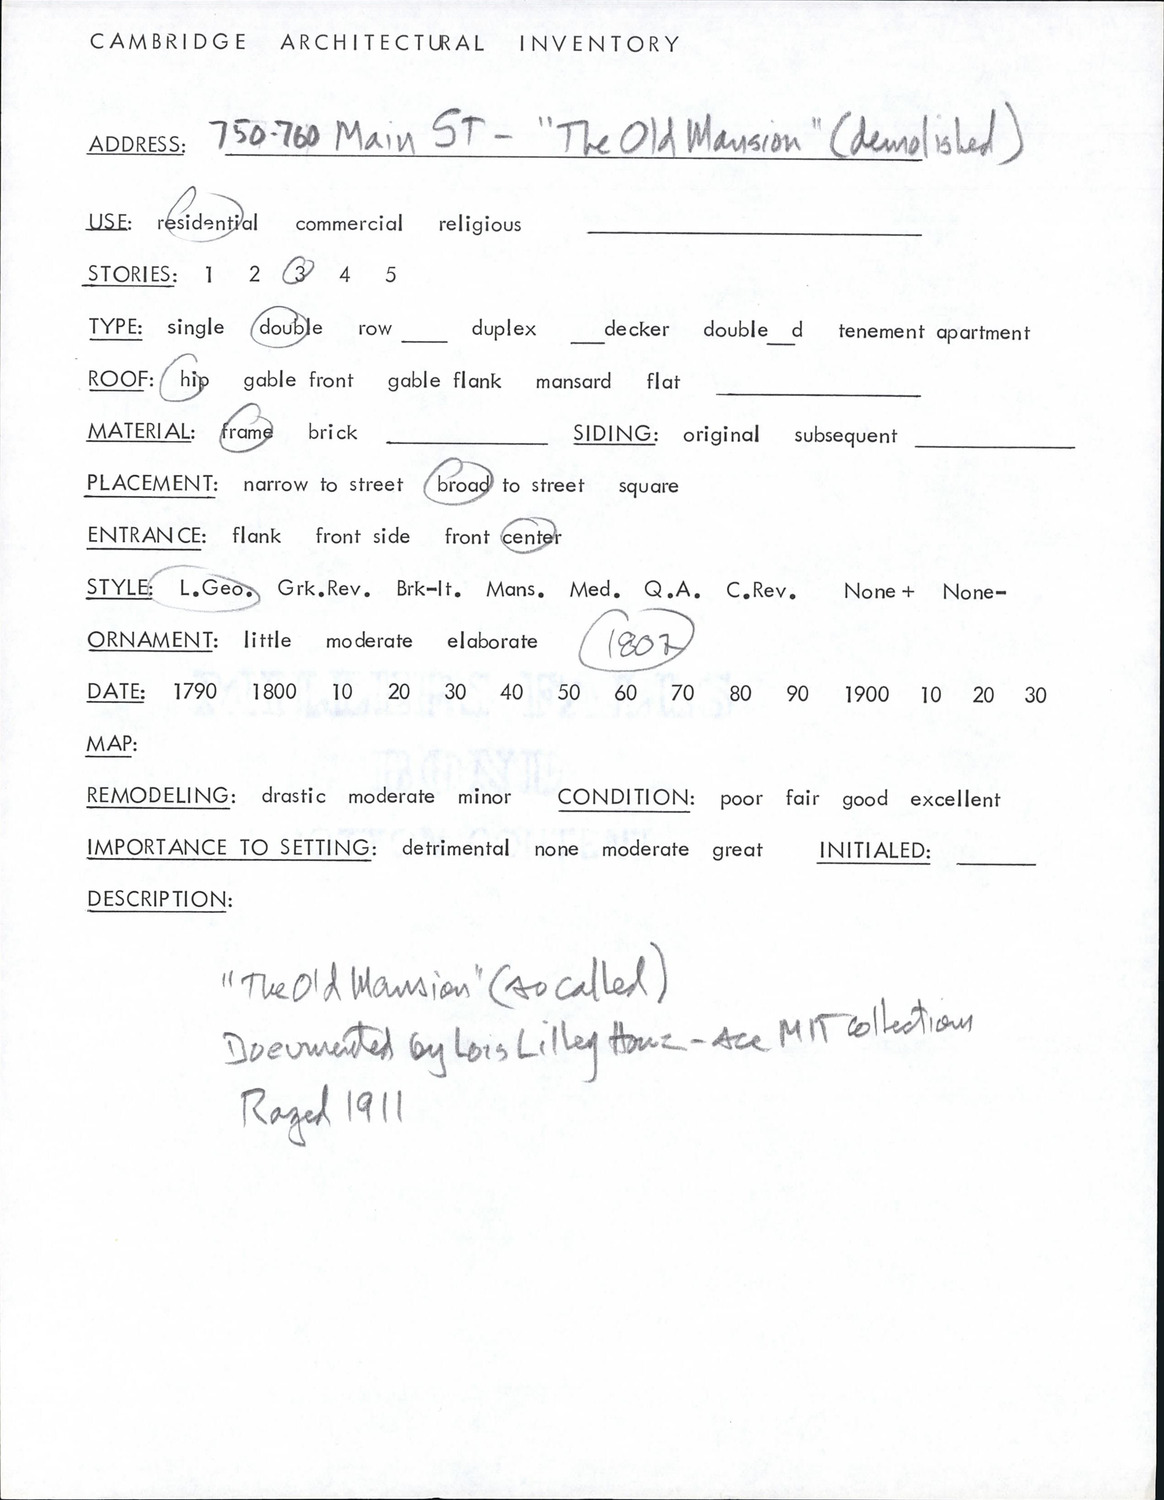 CAMBRIDGE ARCHITECTURAL INVENTORY
ADDRESS: 750-760 Main ST - "The Old Mansion" (demolished)
USE: residential commercial religious
STORIES: 1 2 3 4 5
TYPE: single double row ___ duplex ___decker double__d tenement apartment
ROOF: hip gable front gable flank mansard flat
MATERIAL: frame brick SIDING: original subsequent
PLACEMENT: narrow to street broad to street square
ENTRANCE: flank front side front center
STYLE: L.Geo. Grk.Rev. Brk-It. Mans. Med. Q.A. C.Rev. None+ None-
ORNAMENT: little moderate elaborate 1807
DATE: 1790 1800 10 20 30 40 50 60 70 80 90 1900 10 20 30
MAP:
REMODELING: drastic moderate minor CONDITION: poor fair good excellent
IMPORTANCE TO SETTING: detrimental none moderate great INITIALED:
DESCRIPTION:
"The Old Mansion" (so called)
Documented by Lois Lilley Howe - see MIT collections
Razed 1911